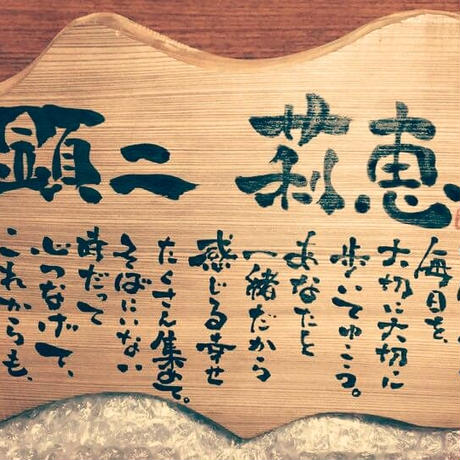 顕二 莉恵
毎日を、
大切に大切に
歩いてゆこう。
あなたと
一緒だから
感じる幸せ
たくさん集めて。
そばにいない
時だって
心つなげて、
これからも、